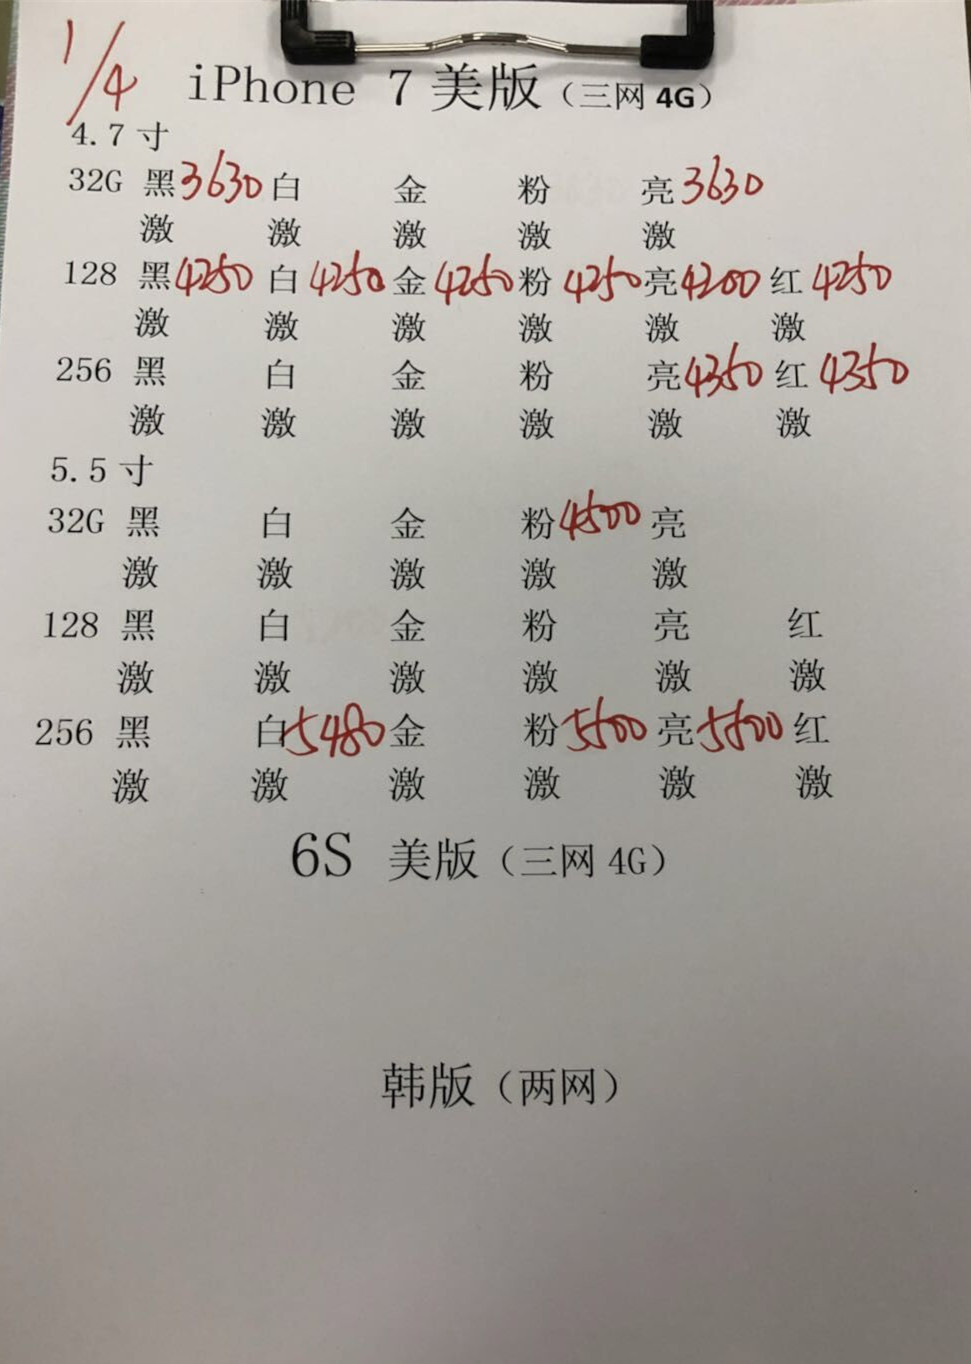 1/4
iPhone 7 美版（三网 4G）
4.7 寸
32G 黑 3630 白 金 粉 亮 3630
激 激 激 激 激
128 黑 4250 白 4250 金 4250 粉 4250 亮 4200 红 4250
激 激 激 激 激 激
256 黑 白 金 粉 亮 4350 红 4350
激 激 激 激 激 激
5.5 寸
32G 黑 白 金 粉 4500 亮
激 激 激 激 激
128 黑 白 金 粉 亮 红
激 激 激 激 激 激
256 黑 白 5480 金 粉 5500 亮 5500 红
激 激 激 激 激 激
6S 美版（三网 4G）
韩版（两网）